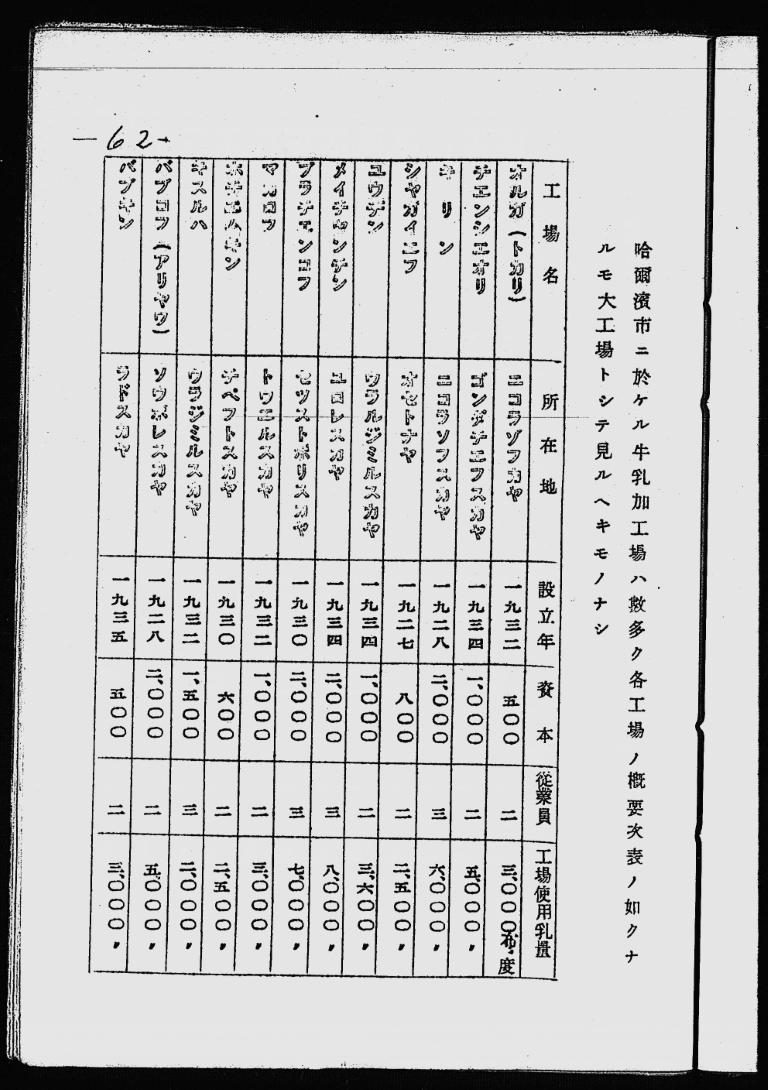 哈爾濱市ニ於ケル牛乳加工場ハ數多ク各工場ノ概要次表ノ如クナ
ルモ大工場トシテ見ルヘキモノナシ
工場名 所在地 設立年 資本 從業員 工場使用乳量
オルガ(トカリ) ニコラゾフカヤ 一九三二 五〇〇 二 三、〇〇〇布度
チエンシエオリ ゴンダチエフスカヤ 一九三四 一、〇〇〇 二 五、〇〇〇〃
キリン ニコラソフスカヤ 一九二八 二、〇〇〇 三 六、〇〇〇〃
シヤガイニフ オセトナヤ 一九二七 八〇〇 二 二、五〇〇〃
ユウデン ウラルジミルスカヤ 一九三四 一、〇〇〇 二 三、六〇〇〃
メイチヤンチン ユロレスカヤ 一九三四 二、〇〇〇 三 八、〇〇〇〃
ブラチエンコフ セツストポリスカヤ 一九三〇 二、〇〇〇 三 七、〇〇〇〃
マカロフ トウエルスカヤ 一九三二 一、〇〇〇 二 三、〇〇〇〃
ホチエムキン チペフトスカヤ 一九三〇 六〇〇 二 二、五〇〇〃
キスルハ ウラジミルスカヤ 一九三二 一、五〇〇 三 二、〇〇〇〃
バブコフ(アリヤウ) ソウボレスカヤ 一九二八 二、〇〇〇 二 五、〇〇〇〃
バブキン ラドスカヤ 一九三五 五〇〇 二 三、〇〇〇〃
—62—